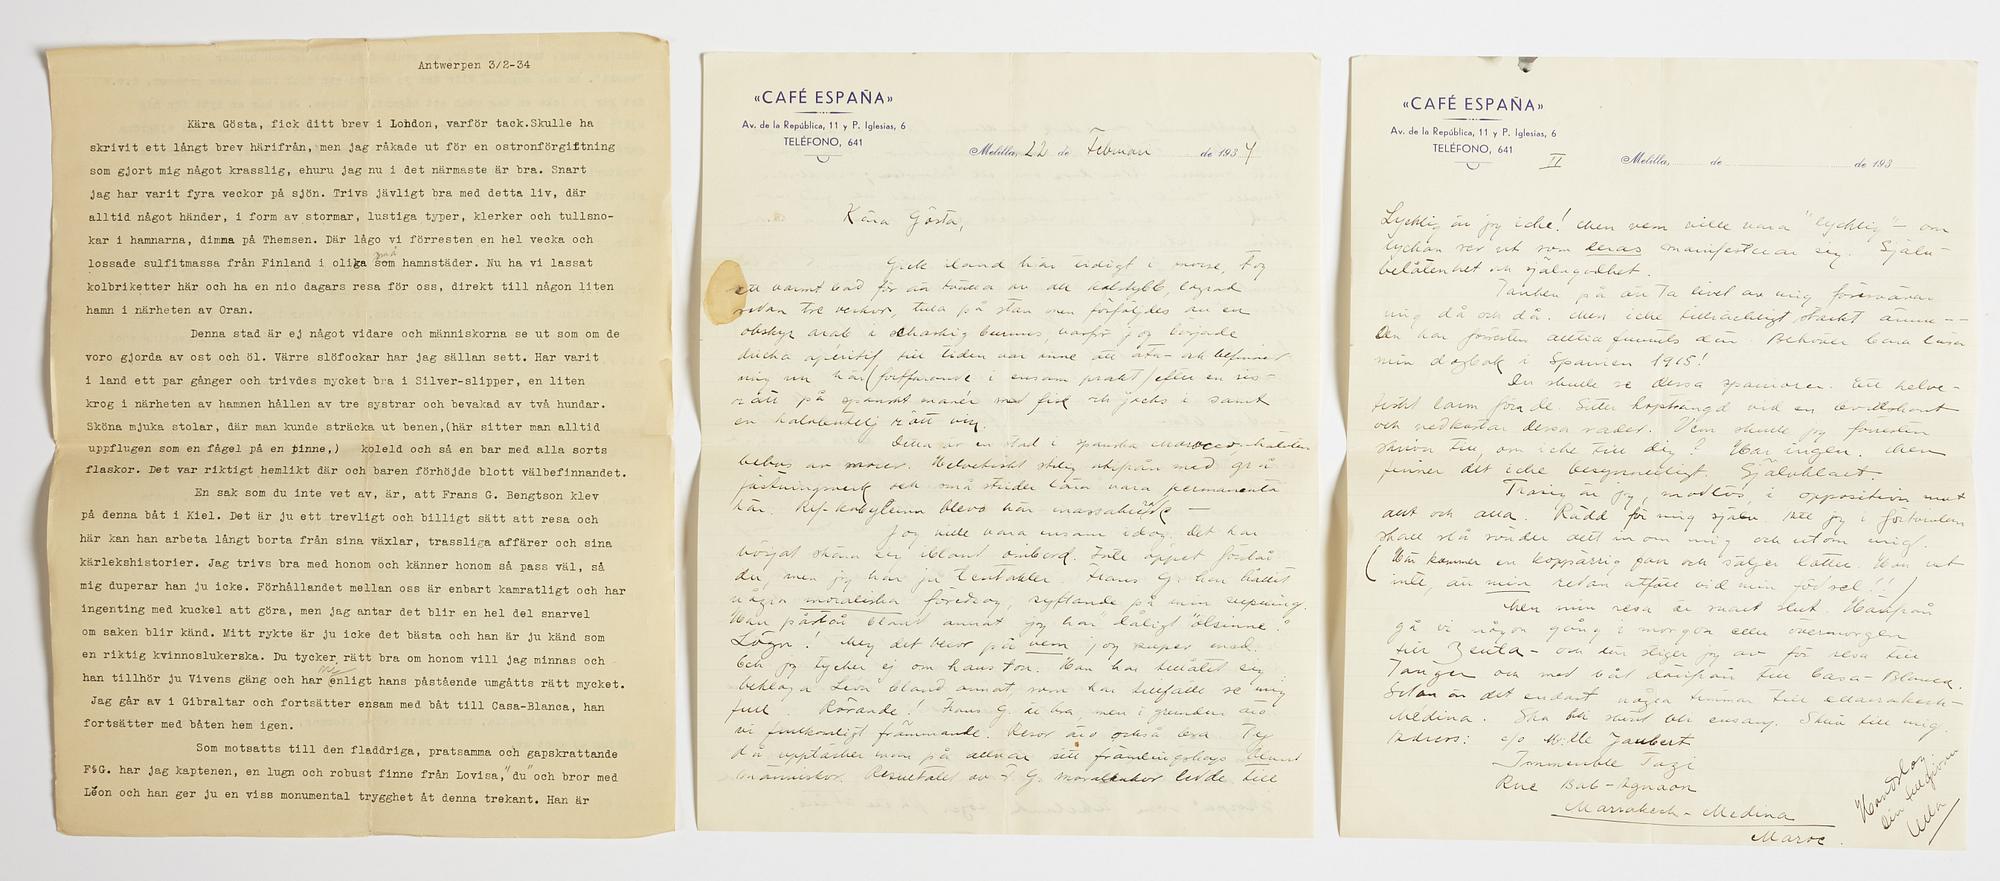 Antwerpen 3/2-34
Kära Gösta, fick ditt brev i London, varför tack.Skulle ha
skrivit ett långt brev härifrån, men jag råkade ut för en ostronförgiftning
som gjort mig något krasslig, ehuru jag nu i det närmaste är bra. Snart
jag har varit fyra veckor på sjön. Trivs jävligt bra med detta liv, där
alltid något händer, i form av stormar, lustiga typer, klerker och tullsno-
kar i hamnarna, dimma på Themsen. Där lågo vi förresten en hel vecka och
små
lossade sulfitmassa från Finland i olika som hamnstäder. Nu ha vi lassat
kolbriketter här och ha en nio dagars resa för oss, direkt till någon liten
hamn i närheten av Oran.
Denna stad är ej något vidare och människorna se ut som om de
voro gjorda av ost och öl. Värre slöfockar har jag sällan sett. Har varit
i land ett par gånger och trivdes mycket bra i Silver-slipper, en liten
krog i närheten av hamnen hållen av tre systrar och bevakad av två hundar.
Sköna mjuka stolar, där man kunde sträcka ut benen,(här sitter man alltid
uppflugen som en fågel på en pinne,) koleld och så en bar med alla sorts
flaskor. Det var riktigt hemlikt där och baren förhöjde blott välbefinnandet.
En sak som du inte vet av, är, att Frans G. Bengtson klev
på denna båt i Kiel. Det är ju ett trevligt och billigt sätt att resa och
här kan han arbeta långt borta från sina växlar, trassliga affärer och sina
kärlekshistorier. Jag trivs bra med honom och känner honom så pass väl, så
mig duperar han ju icke. Förhållandet mellan oss är enbart kamratligt och har
ingenting med kuckel att göra, men jag antar det blir en hel del snarvel
om saken blir känd. Mitt rykte är ju icke det bästa och han är ju känd som
en riktig kvinnoslukerska. Du tycker rätt bra om honom vill jag minnas och
han tillhör ju Vivens gäng och har enligt hans påstående umgåtts rätt mycket.
Jag går av i Gibraltar och fortsätter ensam med båt till Casa-Blanca, han
fortsätter med båten hem igen.
Som motsatts till den fladdriga, pratsamma och gapskrattande
F§G. har jag kaptenen, en lugn och robust finne från Lovisa,"du"och bror med
Léon och han ger ju en viss monumental trygghet åt denna trekant. Han är
«CAFÉ ESPAÑA»
Av. de la República, 11 y P. Iglesias, 6
TELÉFONO, 641
Melilla, 22 de Februari de 1934
Kära Gösta,
Gick iland här tidigt i morse, tog
ett varmt bad för att tvätta av all kolstybb, lagrad
sedan tre veckor, tula på stan men förföljdes av en
obskyr arab i burnus, varför jag började
dricka aperitif till tiden var inne att äta och befinner
mig nu här (fortfarande i ensam prakt) efter en ris-
rätt på spanskt manér med fisk och i samt
en rätt vin.
Detta är en stad i spanska
bebos av morer. utifrån med grå
fästningsverk och små strider lära vara permanenta
här. Rif-kabylerna blevo här massakrerade
Jag ville vara ensam idag, det har
börjat skära sig ibland ombord. Inte öppet förstår
du, men jag har ju tentakler. Frans G. har hållit
några moraliska föredrag, syftande på min supning.
Han påstår bland annat jag har dåligt "ölsinne".
Lögn! Mej det beror på vem jag super med.
Och jag tycker ej om hans ton. Han har tillåtit sig
beklaga Léon bland annat, som har tillfälle se mig
full. Rörande! Frans G. är bra, men i grunden äro
vi främmande. Resor äro också bra. Ty
då upptäcker man på allvar sitt främlingskap bland
människor. Resultatet av F. G. ledde till
«CAFÉ ESPAÑA»
Av. de la República, 11 y P. Iglesias, 6
TELÉFONO, 641
II
Melilla, de de 193
Lycklig är jag icke! Men vem ville vara "lycklig" - om
lyckan ser ut som deras manifesterar sig. Själv-
belåtenhet och självgodhet.
Tanken på att ta livet av mig försvinner
mig då och då. Men icke tillräckligt starkt ännu --
Den har förresten alltid funnits där. Behöver bara läsa
min dagbok i Spanien 1915!
Du skulle se dessa spanjorer. Ett helve-
tiskt larm föra de. Sitter hopträngd vid en
och nedkastar dessa rader. Vem skulle jag förresten
skriva till, om icke till dig? Har ingen. Men
finner det icke besynnerligt. Självklart.
Trasig är jag, modlös, i opposition mot
allt och alla. Rädd för mig själv. Att jag i förtvivlan
skall slå sönder allt inom mig och utom mig.
(Här kommer en koppärrig man och säljer lotter. Han vet
inte, att min redan utföll vid min födsel!!)
Men min resa är snart slut. Härifrån
gå vi någon gång i morgon eller övermorgon
till Zeuta - och där stiger jag av för resa till
Tanger och med båt därifrån till Casa-Blanca.
Sedan är det endast några timmar till Marrakech-
Medina. Ska bli skönt bli ensam. Skriv till mig.
Adress: c/o Mlle Jaubert
Immeuble Tazi
Rue Bab-Agnaou
Marrakech-Medina
Maroc.
Handslag
din tillgivna